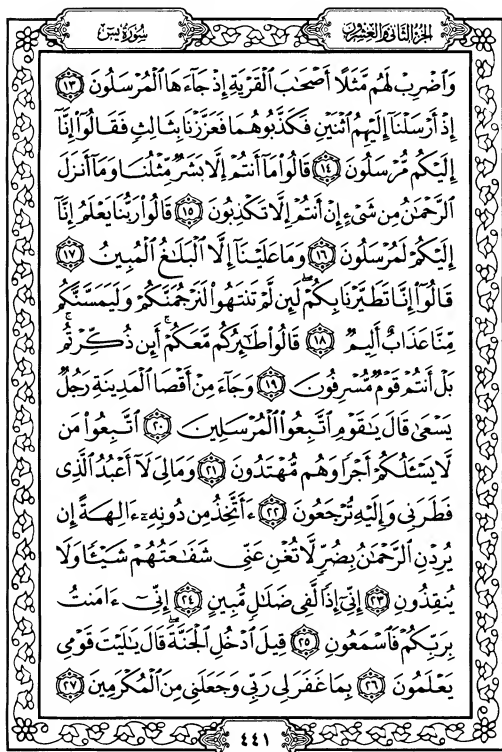 الجزء الثاني والعشرون
سورة يس
وَاضْرِبْ لَهُم مَّثَلًا أَصْحَٰبَ الْقَرْيَةِ إِذْ جَاءَهَا الْمُرْسَلُونَ ١٣
إِذْ أَرْسَلْنَا إِلَيْهِمُ اثْنَيْنِ فَكَذَّبُوهُمَا فَعَزَّزْنَا بِثَالِثٍ فَقَالُوا إِنَّا
إِلَيْكُم مُّرْسَلُونَ ١٤ قَالُوا مَا أَنتُمْ إِلَّا بَشَرٌ مِّثْلُنَا وَمَا أَنزَلَ
الرَّحْمَٰنُ مِن شَيْءٍ إِنْ أَنتُمْ إِلَّا تَكْذِبُونَ ١٥ قَالُوا رَبُّنَا يَعْلَمُ إِنَّا
إِلَيْكُمْ لَمُرْسَلُونَ ١٦ وَمَا عَلَيْنَا إِلَّا الْبَلَٰغُ الْمُبِينُ ١٧
قَالُوا إِنَّا تَطَيَّرْنَا بِكُمْ ۖ لَئِن لَّمْ تَنتَهُوا لَنَرْجُمَنَّكُمْ وَلَيَمَسَّنَّكُم
مِّنَّا عَذَابٌ أَلِيمٌ ١٨ قَالُوا طَٰئِرُكُم مَّعَكُمْ ۚ أَئِن ذُكِّرْتُم ۚ
بَلْ أَنتُمْ قَوْمٌ مُّسْرِفُونَ ١٩ وَجَاءَ مِنْ أَقْصَا الْمَدِينَةِ رَجُلٌ
يَسْعَىٰ قَالَ يَٰقَوْمِ اتَّبِعُوا الْمُرْسَلِينَ ٢٠ اتَّبِعُوا مَن
لَّا يَسْـَٔلُكُمْ أَجْرًا وَهُم مُّهْتَدُونَ ٢١ وَمَا لِيَ لَا أَعْبُدُ الَّذِي
فَطَرَنِي وَإِلَيْهِ تُرْجَعُونَ ٢٢ ءَأَتَّخِذُ مِن دُونِهِ ءَالِهَةً إِن
يُرِدْنِ الرَّحْمَٰنُ بِضُرٍّ لَّا تُغْنِ عَنِّي شَفَٰعَتُهُمْ شَيْـًٔا وَلَا
يُنقِذُونِ ٢٣ إِنِّي إِذًا لَّفِي ضَلَٰلٍ مُّبِينٍ ٢٤ إِنِّي ءَامَنتُ
بِرَبِّكُمْ فَاسْمَعُونِ ٢٥ قِيلَ ادْخُلِ الْجَنَّةَ ۖ قَالَ يَٰلَيْتَ قَوْمِي
يَعْلَمُونَ ٢٦ بِمَا غَفَرَ لِي رَبِّي وَجَعَلَنِي مِنَ الْمُكْرَمِينَ ٢٧
٤٤١